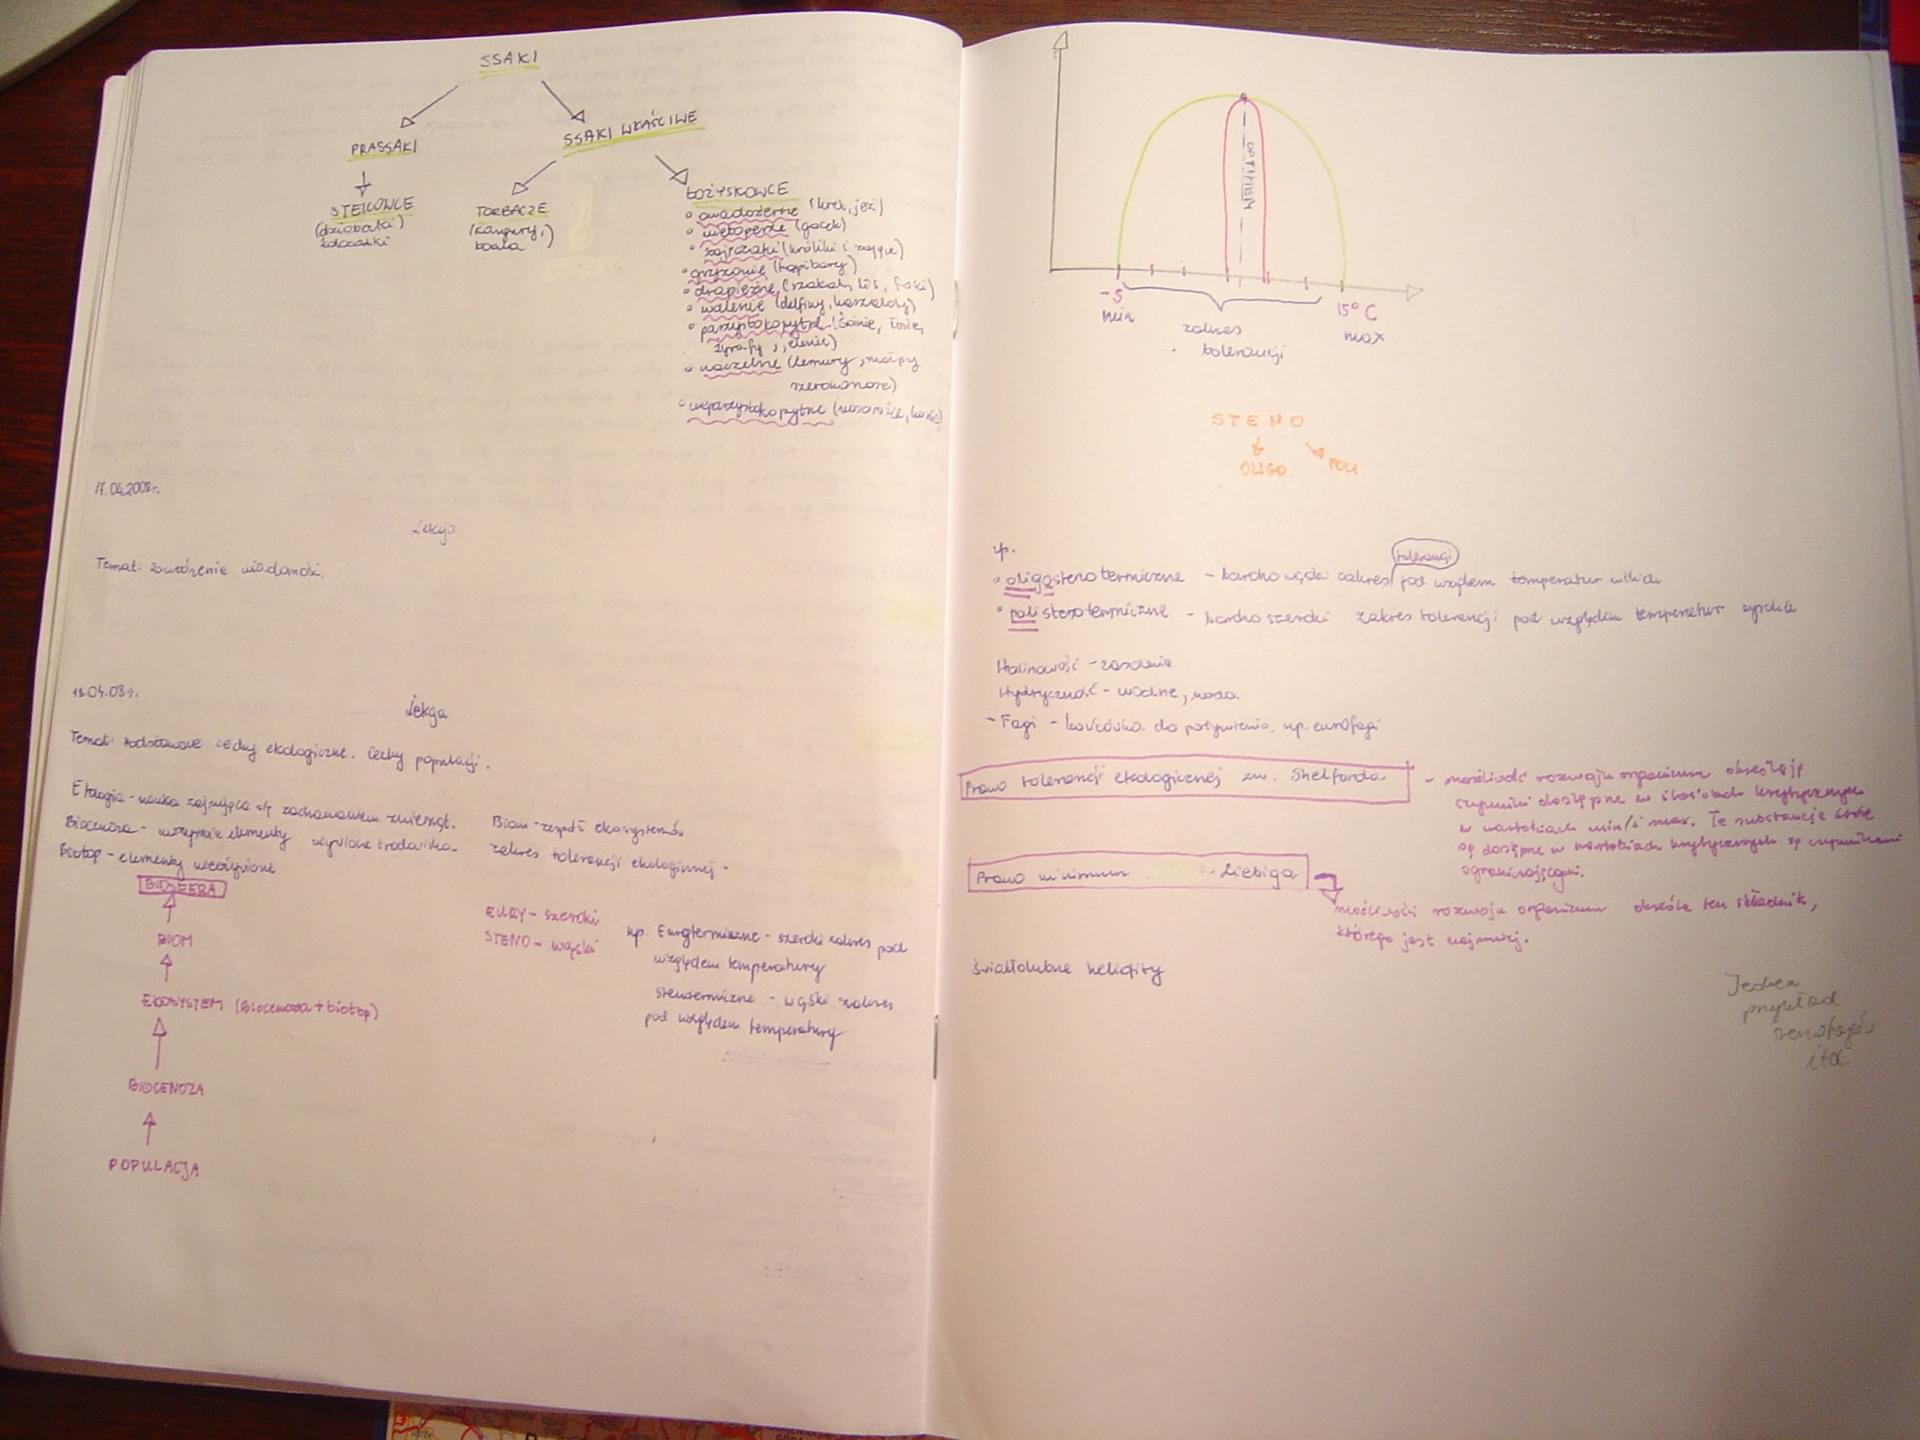 SSAKI
PRASSAKI
SSAKI WŁAŚCIWE
STEKOWCE
(dziobaki
kolczatki
TORBACZE
(kangury,)
koala
ŁOŻYSKOWCE
owadożerne (kret, jeż)
nietoperze (gacek)
zajęczaki (króliki i zające)
gryzonie (kapibary)
drapieżne (szakal, lis, foki)
walenie (delfiny, kaszaloty)
parzystokopytne (świnie, łosie,
żyrafy, jelenie)
naczelne (lemury, małpy
szerokonose)
nieparzystokopytne (nosorożce, konie)
17.04.2008r.
Lekcja
Temat: Powtórzenie wiadomości.
18.04.08r.
Lekcja
Temat: Podstawowe cechy ekologiczne. Cechy populacji.
Etologia - nauka zajmująca się zachowaniem zwierząt.
Biocenoza - wszystkie elementy ożywione środowiska
Biotop - elementy nieożywione
BIOSFERA
BIOM
EKOSYSTEM (Biocenoza + biotop)
BIOCENOZA
POPULACJA
Biom - zespół ekosystemów
zakres tolerancji ekologicznej -
EURY - szeroki
STENO - wąski
np. Eurytermiczne - szeroki zakres pod
względem temperatury
stenotermiczne - wąski zakres
pod względem temperatury
OPTIMUM
-5
min
15°C
max
zakres
tolerancji
STENO
OLIGO
POLI
np.
tolerancji
oligostenotermiczne - bardzo wąski zakres pod względem temperatur
polistenotermiczne - bardzo szeroki zakres tolerancji pod względem temperatur
Halinowość - zasolenie
- wodne, woda.
- Fagi - końcówka do pożywienia np. eurofagi
Prawo tolerancji ekologicznej zw. Shelforda
- możliwość rozwoju organizmu określają
czynniki dostępne w ilościach krytycznych
w wartościach min/i max. Te substancje które
są dostępne w wartościach krytycznych są czynnikami
ograniczającymi.
Prawo minimum Liebiga
możliwości rozwoju organizmu określa ten składnik,
którego jest najmniej.
światłolubne heliofity
Jeden
przykład
stenofagów
itd